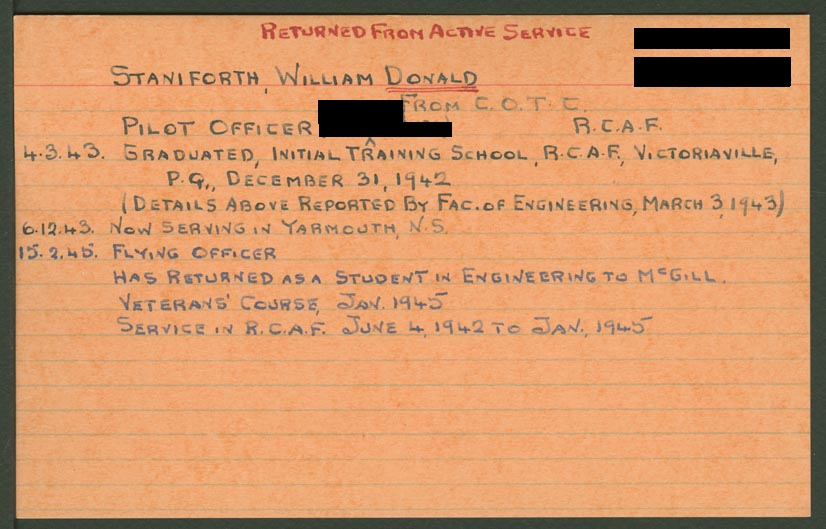 RETURNED FROM ACTIVE SERVICE
STANIFORTH, WILLIAM DONALD
FROM C.O.T.C.
PILOT OFFICER R.C.A.F.
4.3.43. GRADUATED, INITIAL TRAINING SCHOOL, R.C.A.F., VICTORIAVILLE,
P.Q., DECEMBER 31, 1942
(DETAILS ABOVE REPORTED BY FAC. OF ENGINEERING, MARCH 3, 1943)
6.12.43. NOW SERVING IN YARMOUTH, N.S.
15.2.45. FLYING OFFICER
HAS RETURNED AS A STUDENT IN ENGINEERING TO MCGILL.
VETERANS' COURSE, JAN. 1945
SERVICE IN R.C.A.F. JUNE 4, 1942 TO JAN., 1945